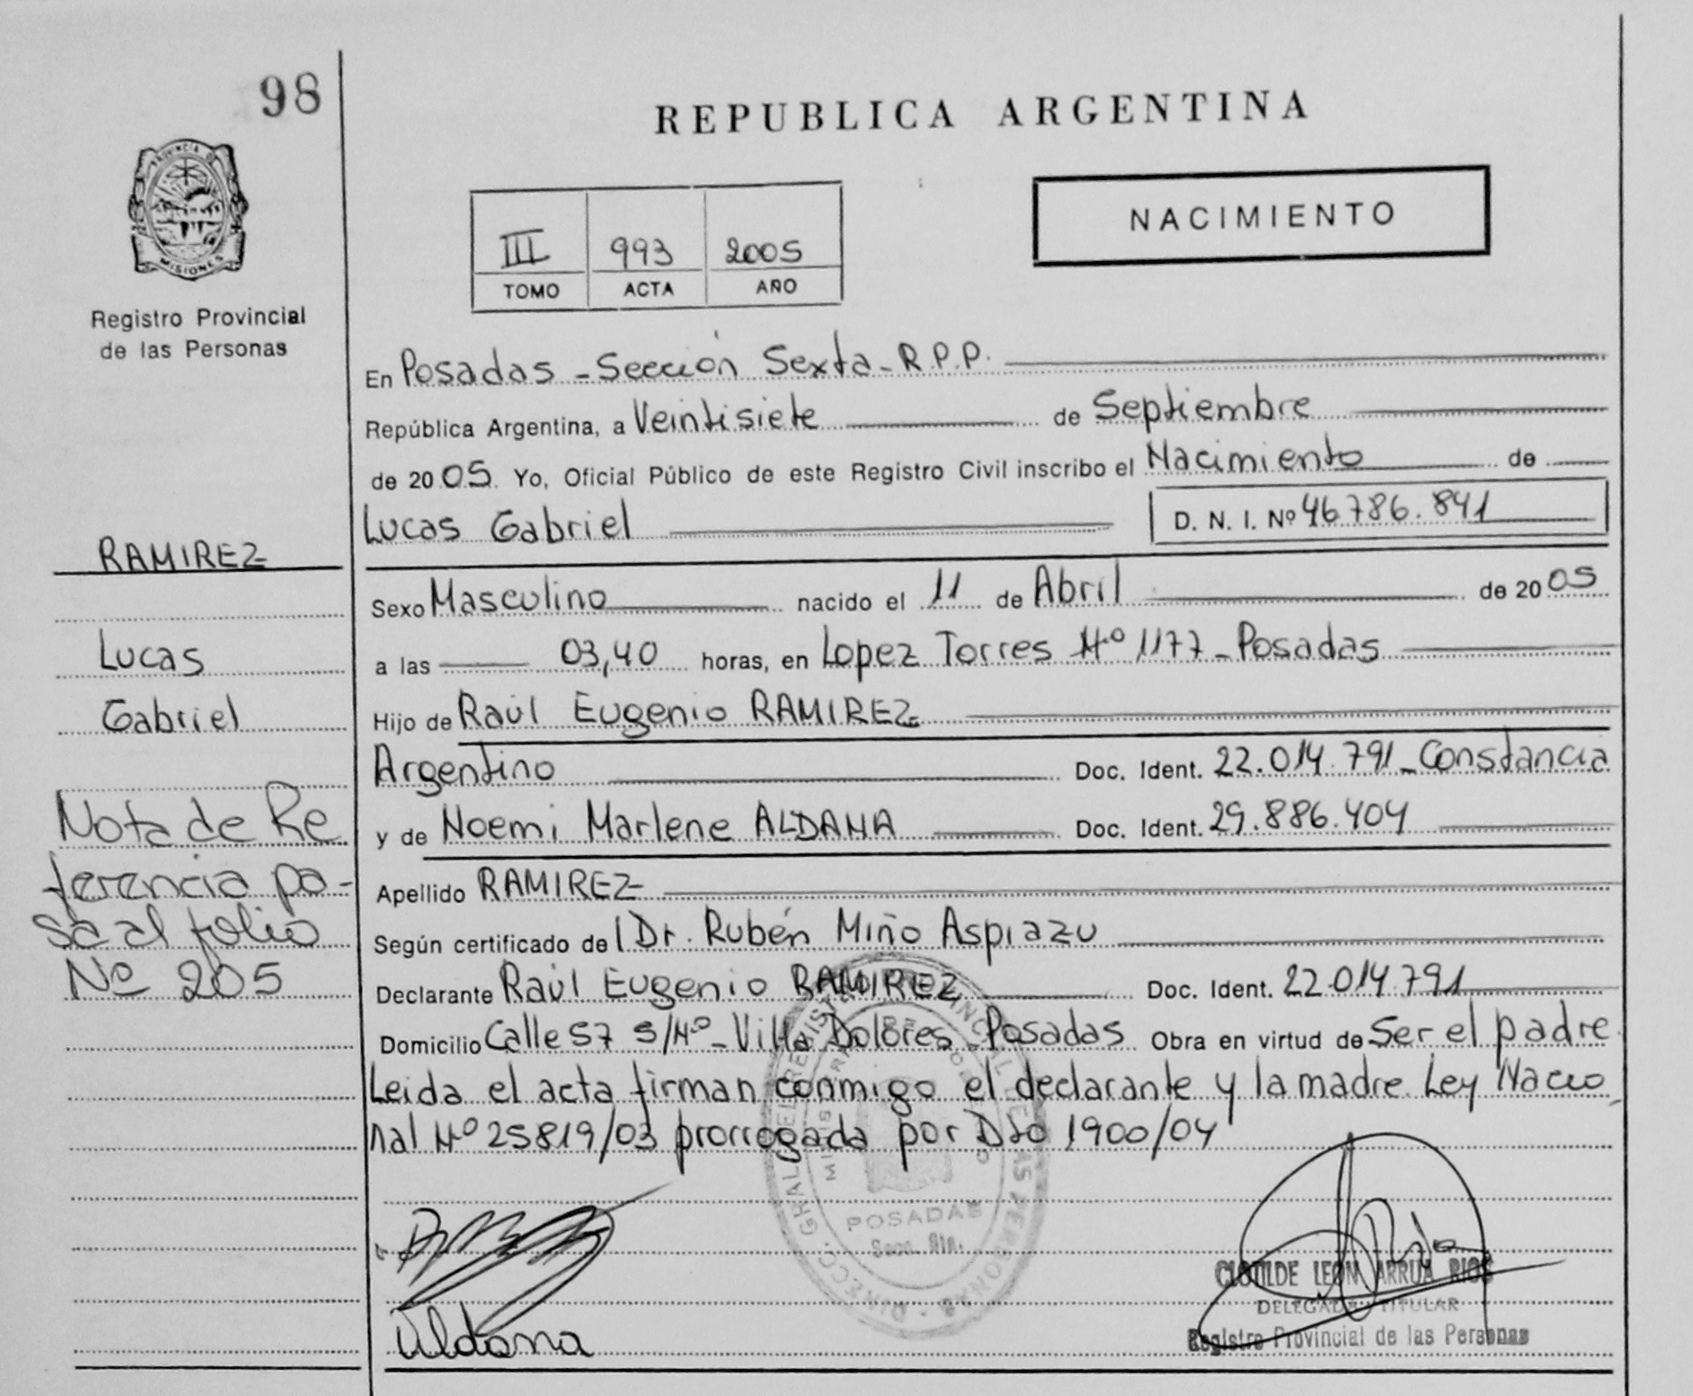 98
REPUBLICA ARGENTINA
PROVINCIA DE
MISIONES
Registro Provincial
de las Personas
NACIMIENTO
III 993 2005
TOMO ACTA AÑO
En Posadas - Sección Sexta - R.P.P.
República Argentina, a Veintisiete de Septiembre
de 2005. Yo, Oficial Público de este Registro Civil inscribo el Nacimiento de
Lucas Gabriel D. N. I. Nº 46.786.841
RAMIREZ
Sexo Masculino nacido el 11 de Abril de 2005
Lucas
a las 03,40 horas, en Lopez Torres Nº 1177 - Posadas
Gabriel
Hijo de Raúl Eugenio RAMIREZ
Argentino Doc. Ident. 22.014.791 - Constancia
y de Noemi Marlene ALDANA Doc. Ident. 29.886.404
Nota de Re
ferencia pa-
sa al folio
Nº 205
Apellido RAMIREZ
Según certificado de Dr. Rubén Miño Aspiazu
Declarante Raúl Eugenio RAMIREZ Doc. Ident. 22.014.791
Domicilio Calle 57 S/Nº - Villa Dolores - Posadas Obra en virtud de Ser el padre
Leida el acta firman conmigo el declarante y la madre. Ley Nacio
nal Nº 25819/03 prorrogada por Dto 1900/04
POSADAS
Aldana
CLOTILDE LEON ARRUA RIOS
DELEGADA TITULAR
Registro Provincial de las Personas